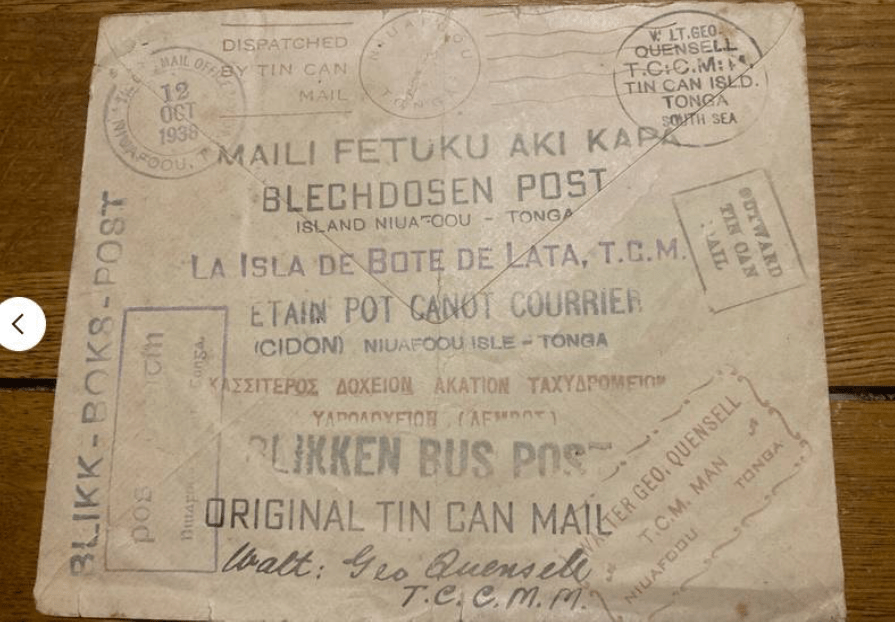 DISPATCHED
BY TIN CAN
MAIL
MAIL OFFICE
12
OCT
1938
NIUAFOOU, T
NIUAFOOU
TONGA
W LT.GEO.
QUENSELL
T.C.C.M.M.
TIN CAN ISLD.
TONGA
SOUTH SEA
MAILI FETUKU AKI KAPA
BLECHDOSEN POST
ISLAND NIUAFOOU - TONGA
LA ISLA DE BOTE DE LATA, T.C.M.
OUTWARD
TIN CAN
MAIL
ETAIN POT CANOT COURRIER
(CIDON) NIUAFOOU ISLE - TONGA
ΚΑΣΣΙΤΕΡΟΣ ΔΟΧΕΙΟΝ ΑΚΑΤΙΟΝ ΤΑΧΥΔΡΟΜΕΙΟΝ
BLIKK-BOKS-POST
BLIKKEN BUS POST
ORIGINAL TIN CAN MAIL
WALTER GEO. QUENSELL
T.C.M. MAN
NIUAFOOU TONGA
Walt: Geo Quensell
T.C.C.M.M.